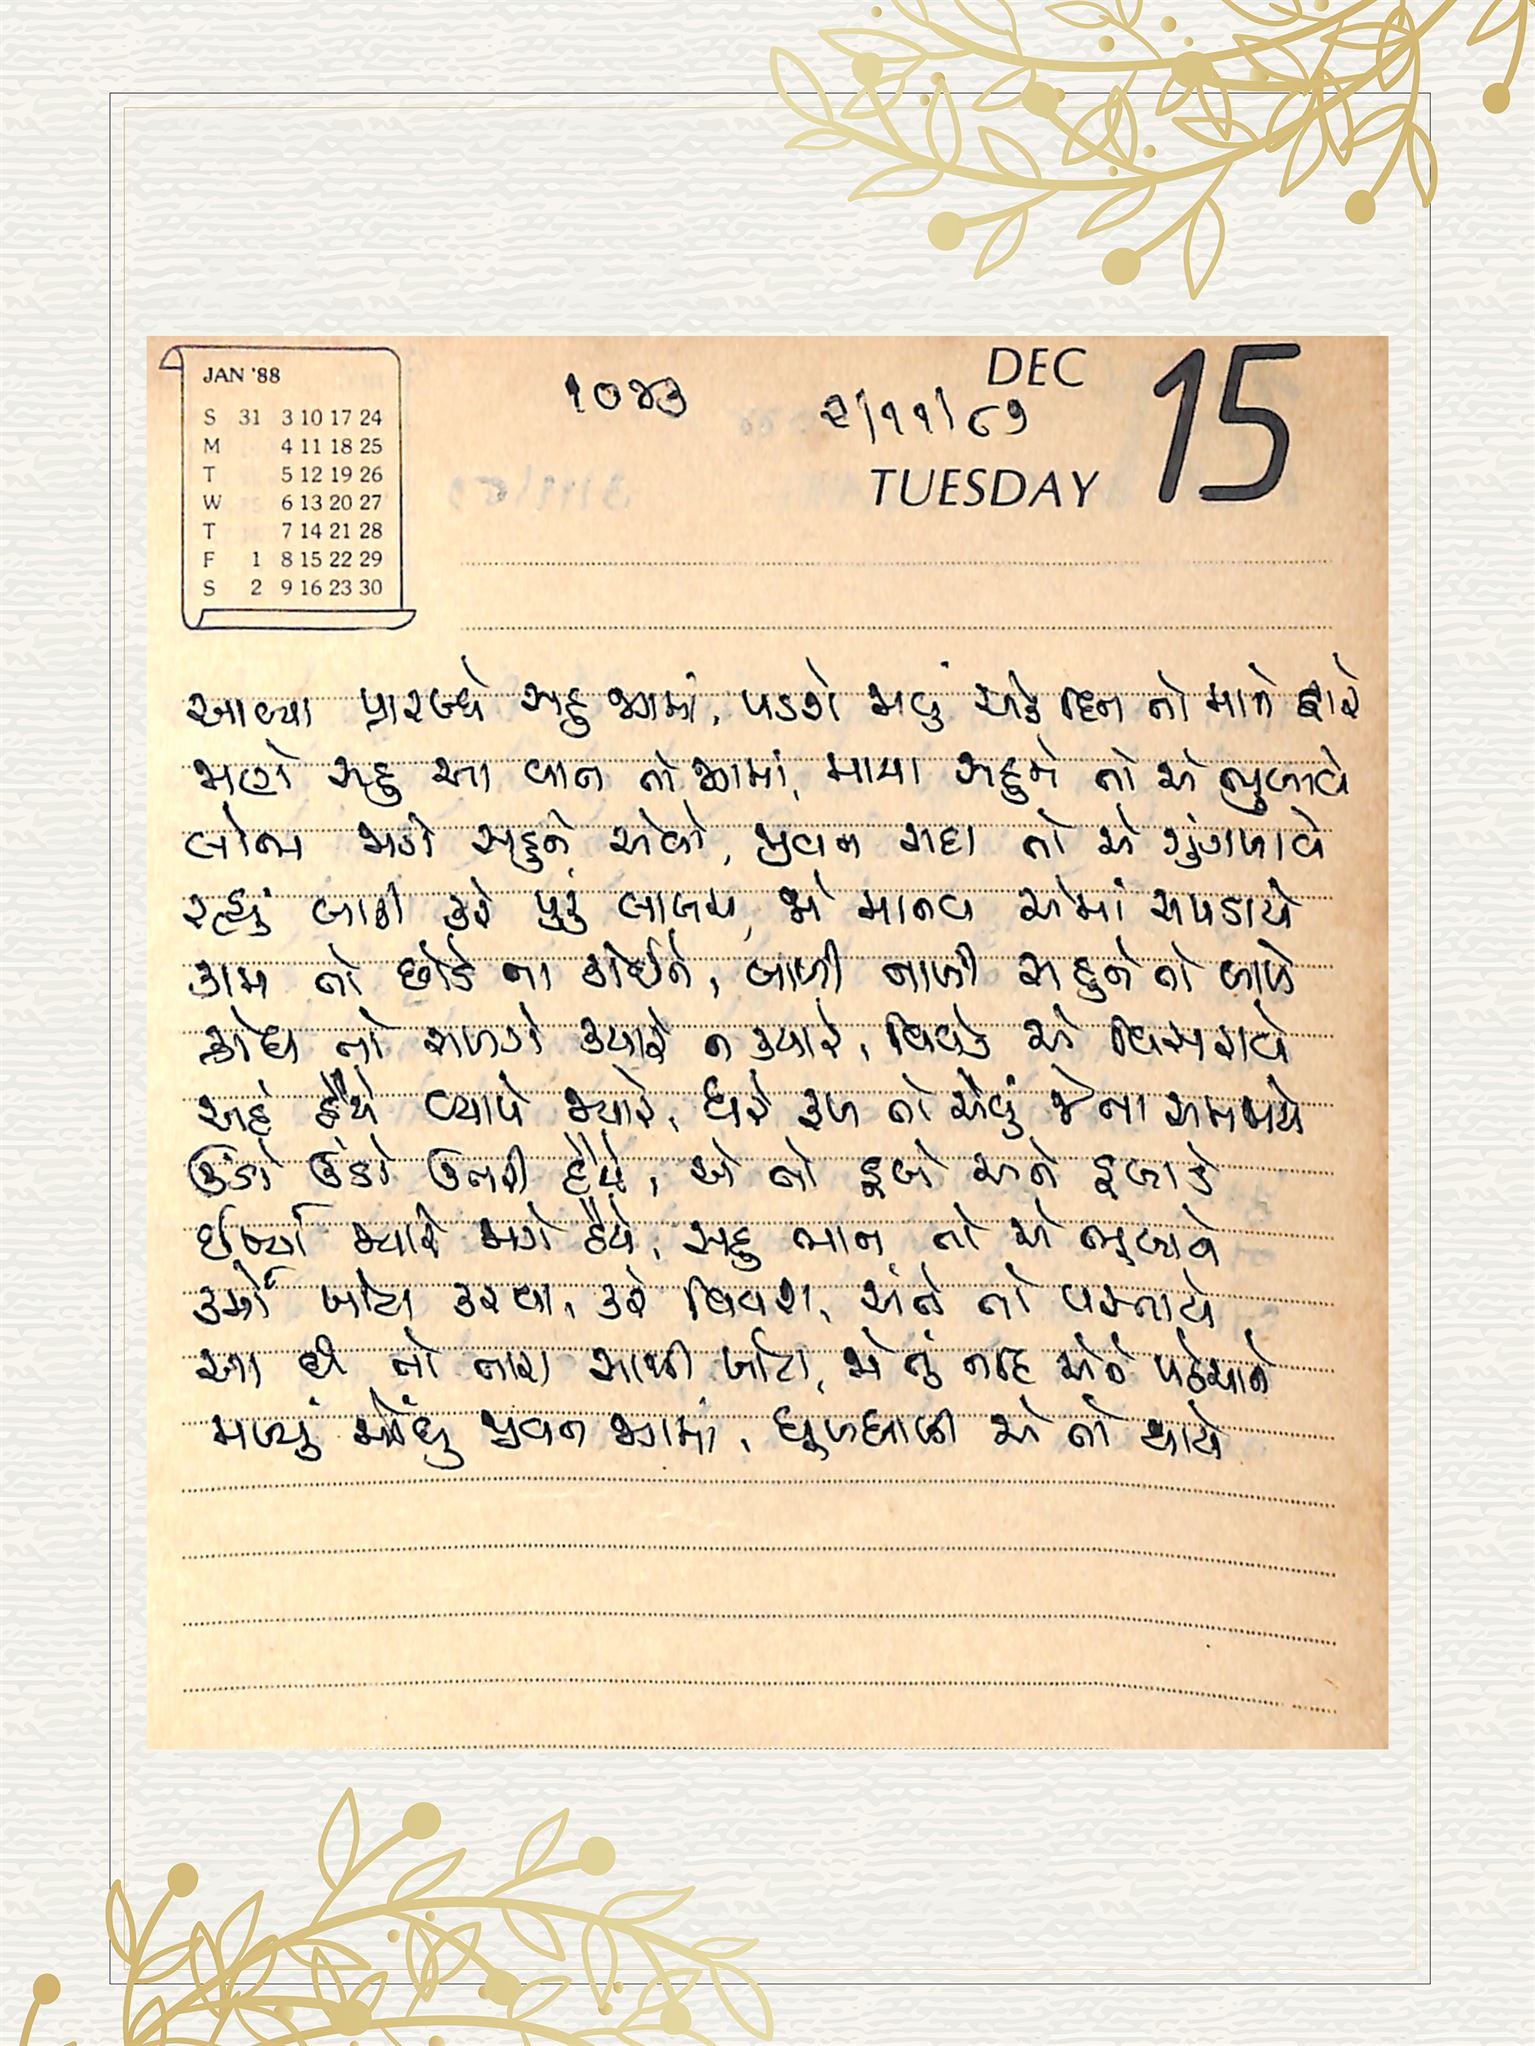 JAN '88
S 31 3 10 17 24
M 4 11 18 25
T 5 12 19 26
W 6 13 20 27
T 7 14 21 28
F 1 8 15 22 29
S 2 9 16 23 30
૧૦૪૩
૨/૧૧/૮૭
DEC
15
TUESDAY
આવ્યા પ્રારબ્ધે સહુ જગમાં, પડશે જવું એક દિન તો
જાણે સહુ આ વાત તો જગમાં, માયા સહુને તો એ ભુલાવે
લોભ જાગે સહુને એવો, જીવન સદા તો એ ગુંગળાવે
રહ્યું બાકી કરે પુરું લાલચ, જો માનવ એમાં સપડાયે
કામ તો છોડે ના કોઈને, બાળી નાખી સહુને તો બાળે
ક્રોધ તો સળગે ક્યારે ન ક્યારે, વિવેક એ વિસરાવે
અહં હૈયે વ્યાપે જ્યારે, ધરે રૂપ તો એવું જે ના સમજાયે
ઊંડો ઊંડો ઉતરી હૈયે, એ તો ડૂબે અને ડૂબાડે
ઈર્ષ્યા જ્યારે જાગે હૈયે, સહુ ભાન તો એ ભૂલાવે
કર્મો ખોટા કરવા, કરે વિવશ, અંતે તો પસ્તાયે
આ છે તો તારા સાથી ખોટા, જો તું નહિ એને પહેચાને
મળ્યું મોંઘું જીવન જગમાં, ધૂળધાણી એ તો થાયે